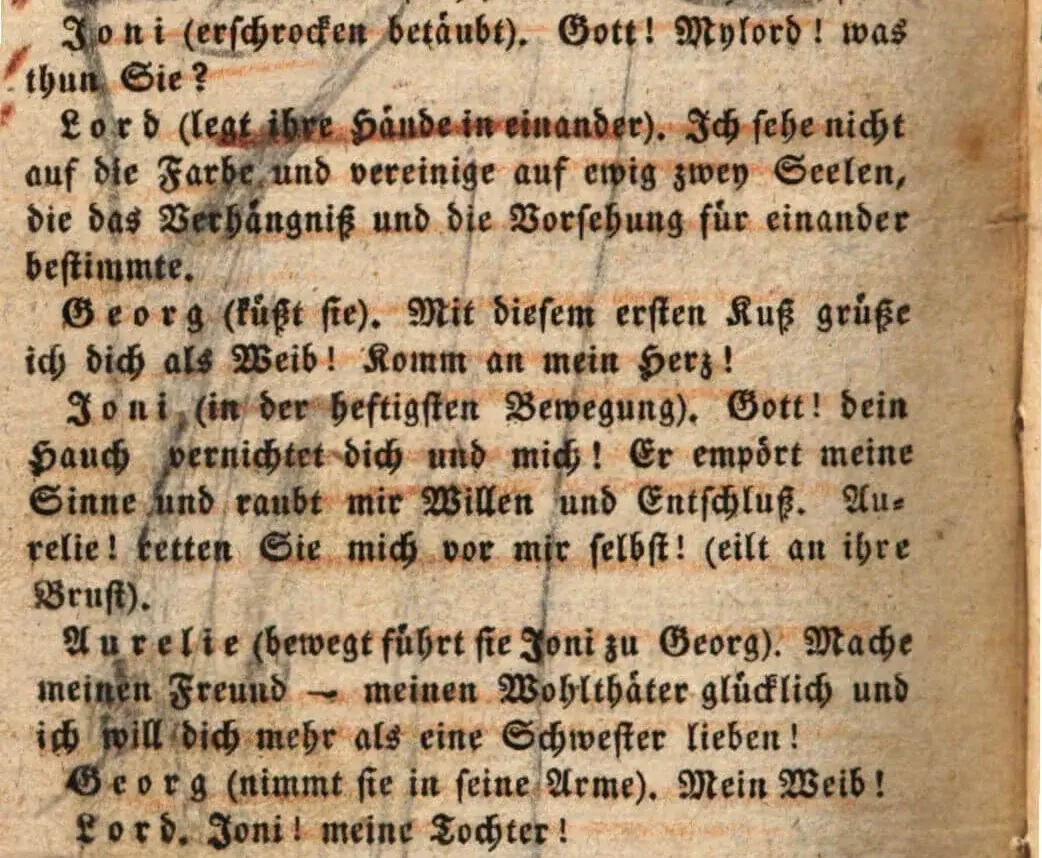 Joni (erschrocken betäubt). Gott! Mylord! was
thun Sie?
Lord (legt ihre Hände in einander). Ich sehe nicht
auf die Farbe und vereinige auf ewig zwey Seelen,
die das Verhängniß und die Vorsehung für einander
bestimmte.
Georg (küßt sie). Mit diesem ersten Kuß grüße
ich dich als Weib! Komm an mein Herz!
Joni (in der heftigsten Bewegung). Gott! dein
Hauch vernichtet dich und mich! Er empört meine
Sinne und raubt mir Willen und Entschluß. Au-
relie! retten Sie mich vor mir selbst! (eilt an ihre
Brust).
Aurelie (bewegt führt sie Joni zu Georg). Mache
meinen Freund — meinen Wohlthäter glücklich und
ich will dich mehr als eine Schwester lieben!
Georg (nimmt sie in seine Arme). Mein Weib!
Lord. Joni! meine Tochter!